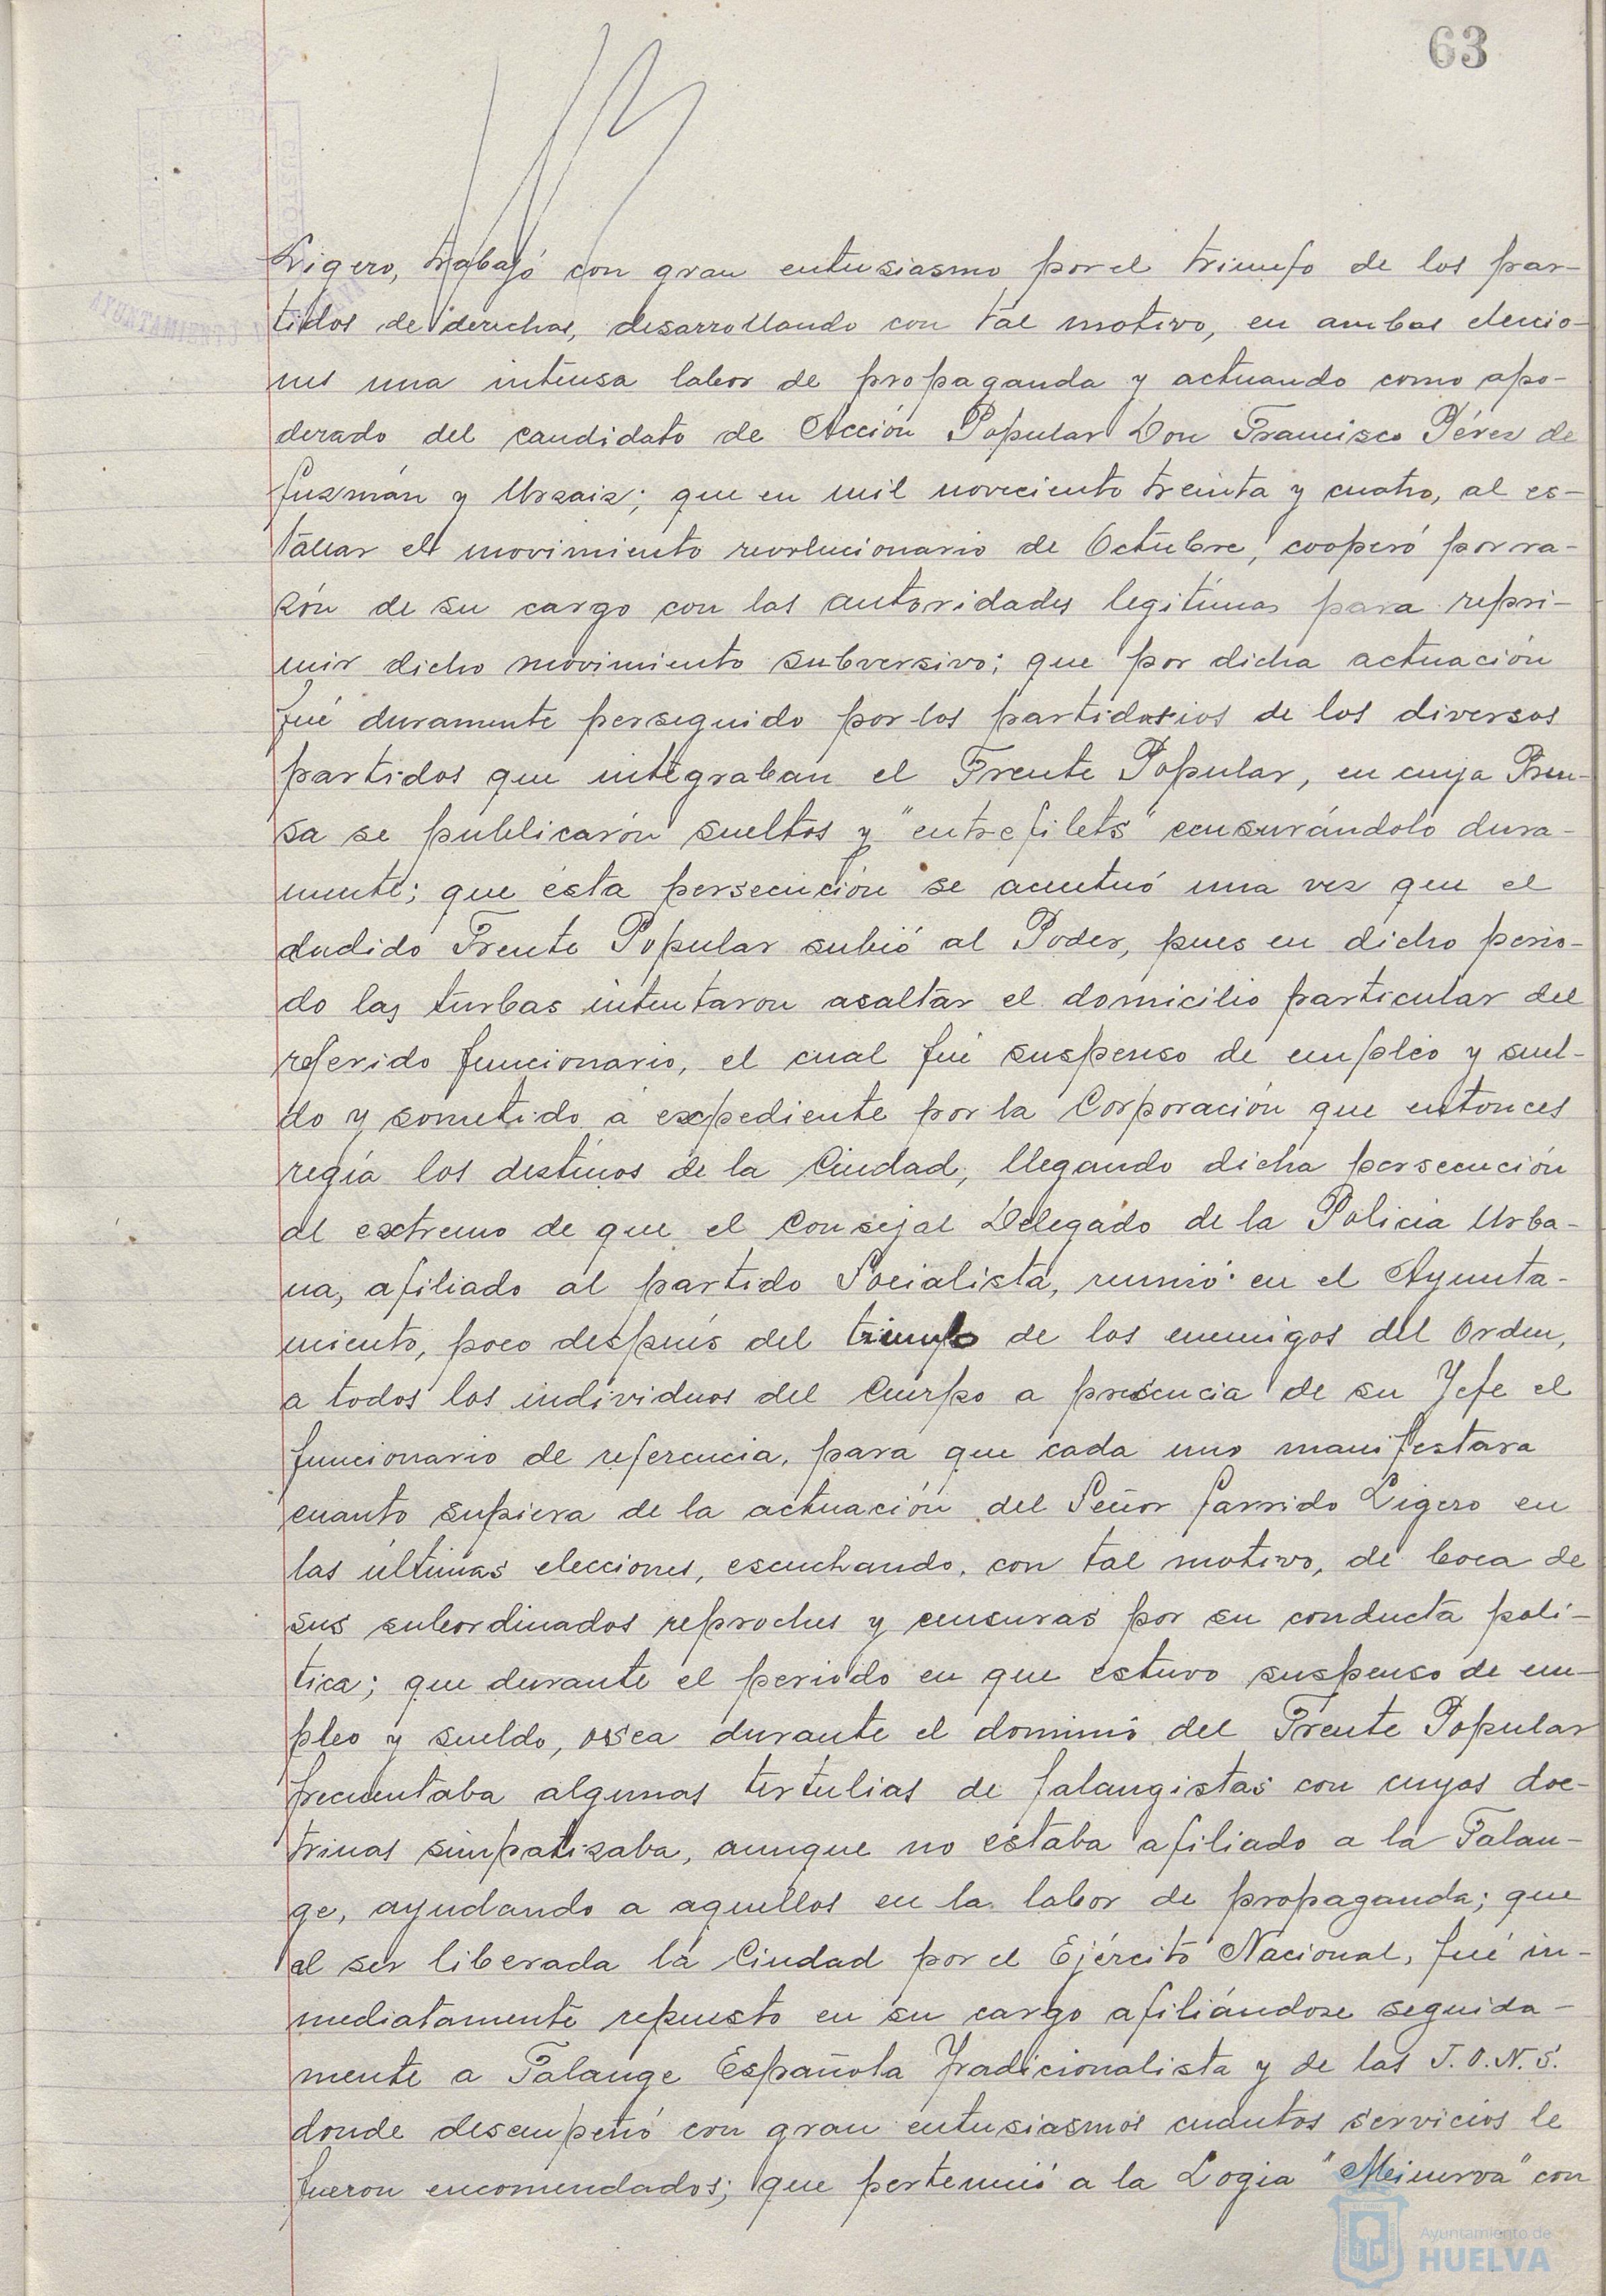 63
Ligero, trabajó con gran entusiasmo por el triunfo de los par-
tidos de derechas, desarrollando con tal motivo, en ambas eleccio-
nes una intensa labor de propaganda y actuando como apo-
derado del candidato de Acción Popular Don Francisco Pérez de
Guzmán y Urzaiz; que en mil noveciento treinta y cuatro, al es-
tallar el movimiento revolucionario de Octubre, cooperó por ra-
zón de su cargo con las autoridades legitimas para repri-
mir dicho movimiento subversivo; que por dicha actuación
fué duramente perseguido por los partidarios de los diversos
partidos que integraban el Frente Popular, en cuya Pren-
sa se publicarón sueltos y "entrefilets" censurándolo dura-
mente; que ésta persecución se acentuó una vez que el
aludido Frente Popular subió al Poder, pues en dicho perio-
do las turbas intentaron asaltar el domicilio particular del
referido funcionario, el cual fué suspenso de empleo y suel-
do y sometido a expediente por la Corporación que entonces
regía los destinos de la Ciudad, llegando dicha persecución
al extremo de que el Consejal Delegado de la Policia Urba-
na, afiliado al partido Socialista, reunió en el Ayunta-
miento, poco después del triunfo de los enemigos del Orden,
a todos los individuos del Cuerpo a presencia de su Jefe el
funcionario de referencia, para que cada uno manifestara
cuanto supiera de la actuación del Señor Garrido Ligero en
las últimas elecciones, escuchando, con tal motivo, de boca de
sus subordinados reproches y censuras por su conducta poli-
tica; que durante el periodo en que estuvo suspenso de em-
pleo y sueldo, osea durante el dominio del Frente Popular
frecuentaba algunas tertulias de falangistas con cuyas doc-
trinas simpatizaba, aunque no estaba afiliado a la Falan-
ge, ayudando a aquellos en la labor de propaganda; que
al ser liberada la Ciudad por el Ejército Nacional, fué in-
mediatamente repuesto en su cargo afiliándose seguida-
mente a Falange Española Tradicionalista y de las J.O.N.S.
donde desempeñó con gran entusiasmos cuantos servicios le
fueron encomendados; que perteneció a la Logia "Minerva" con
Ayuntamiento de
HUELVA